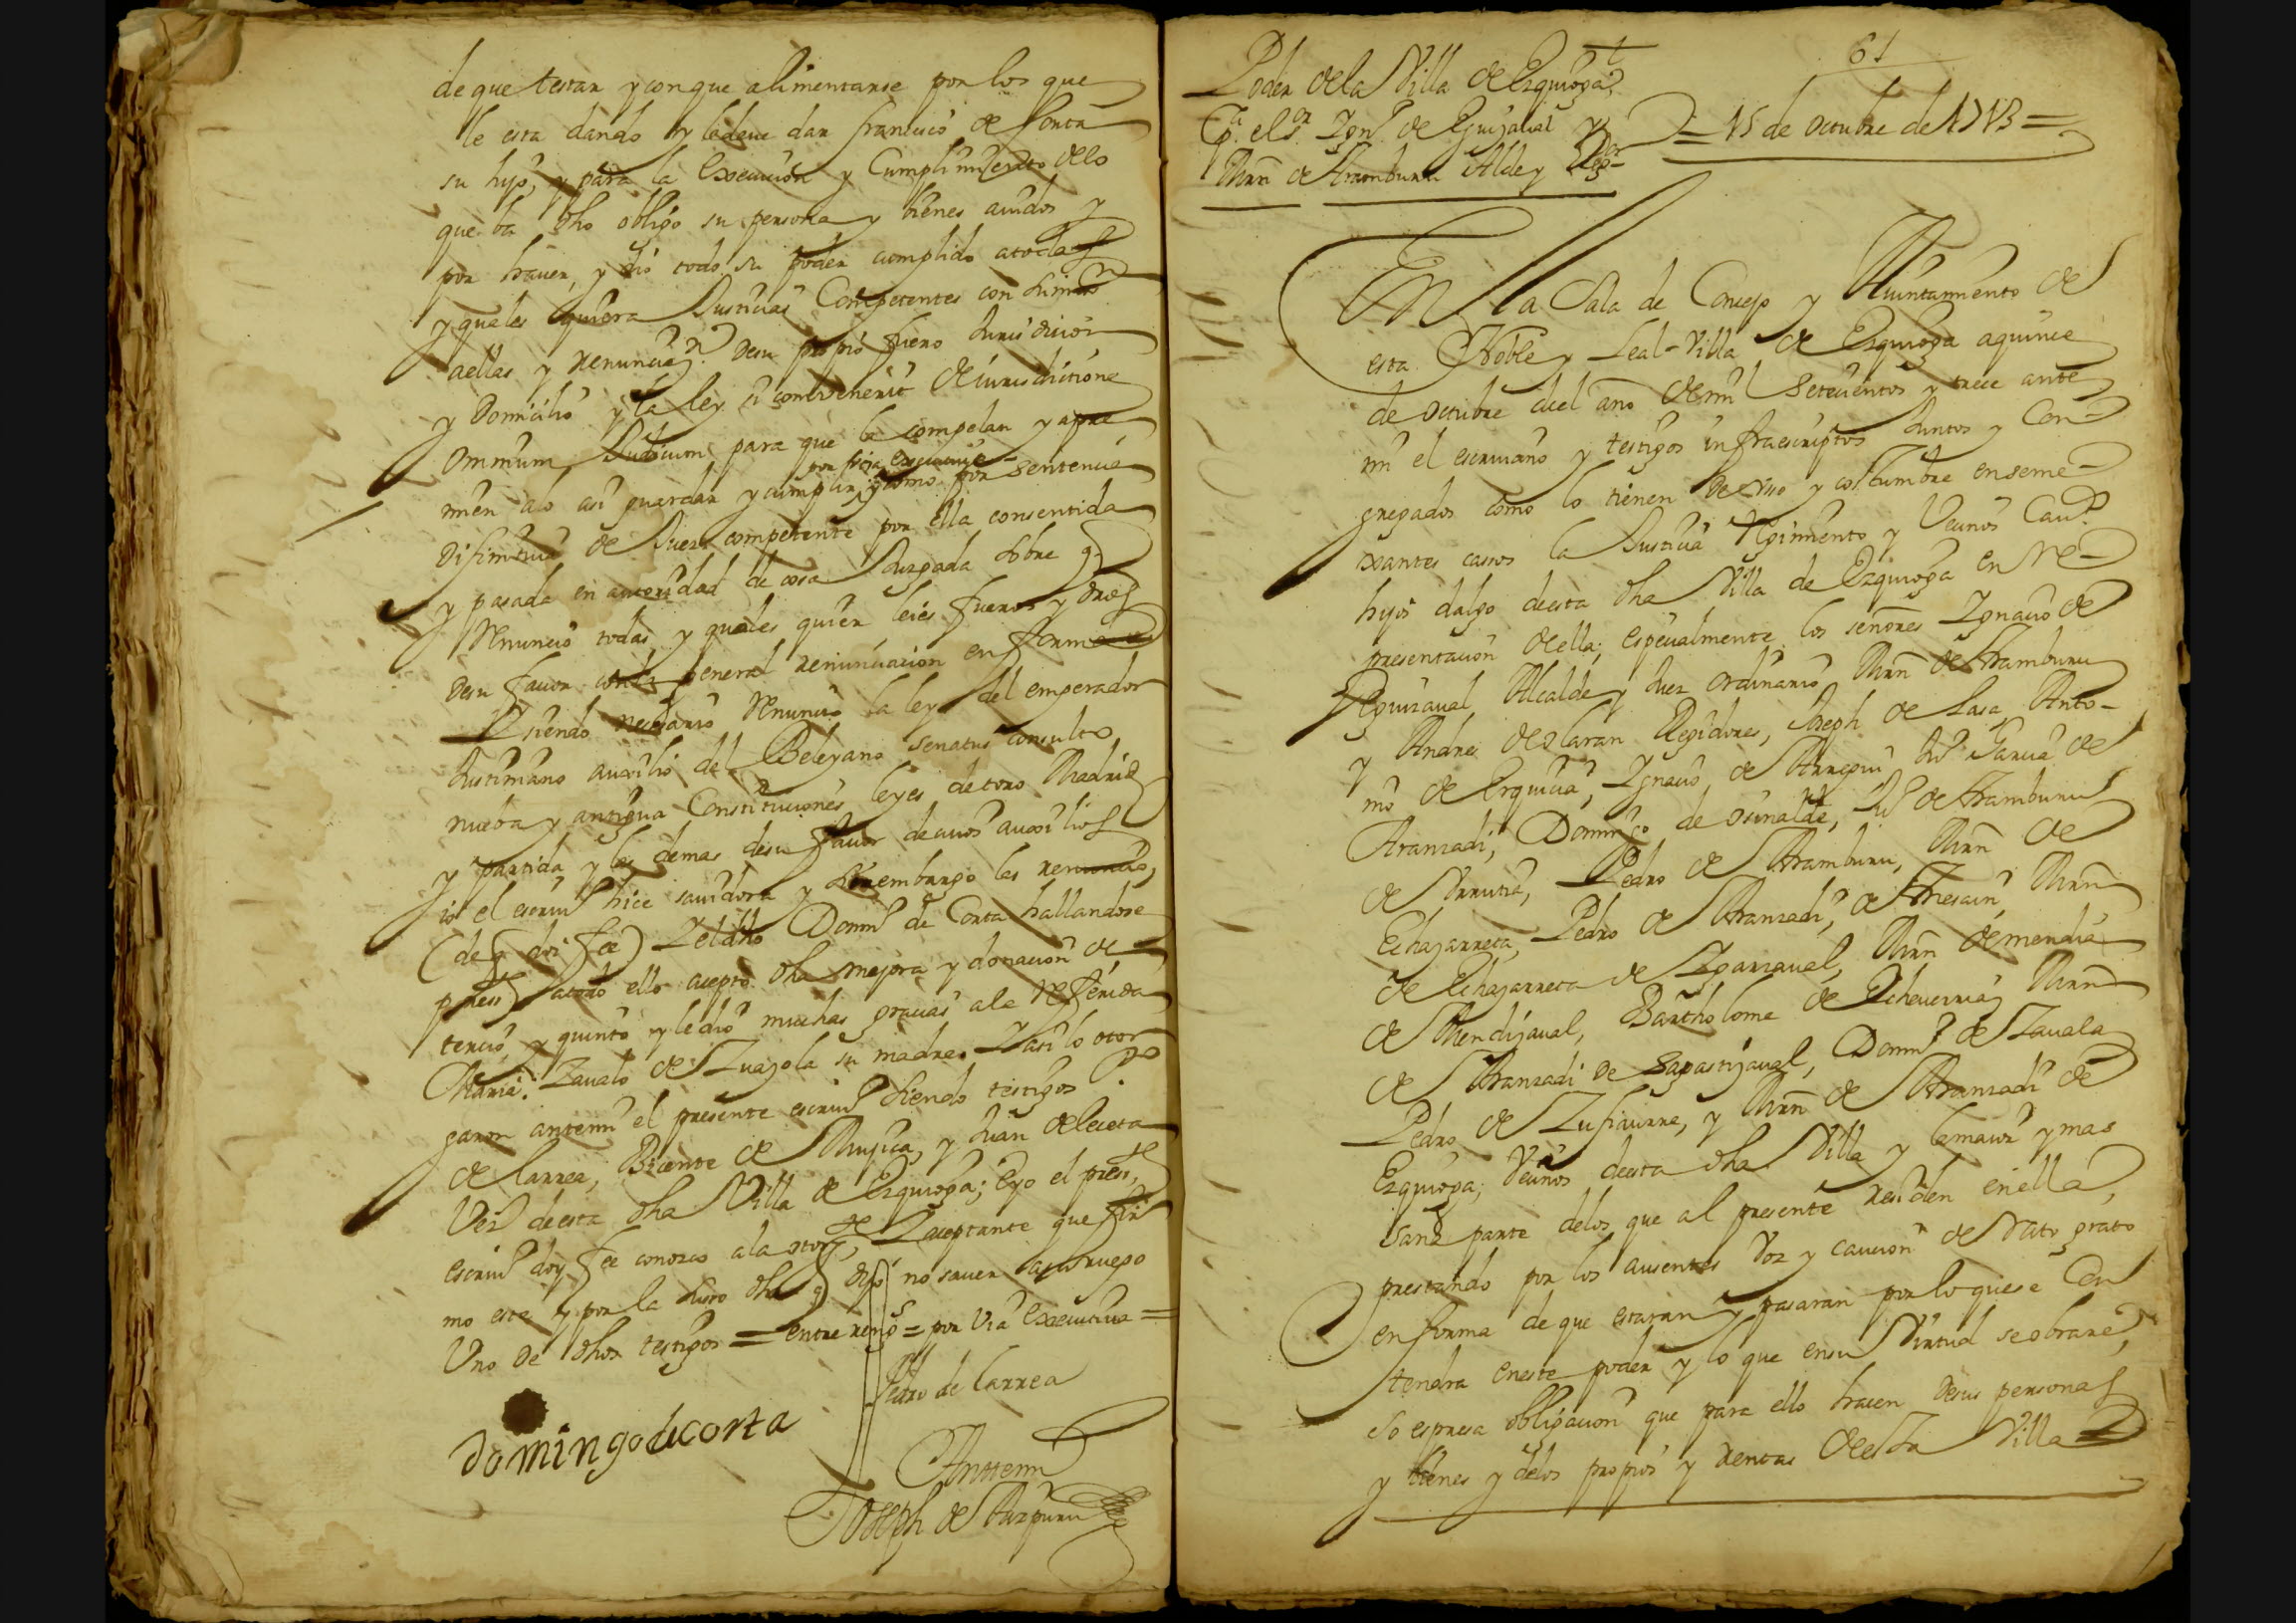 de que testar y con que alimentarse por los que
le esta dando y le deve dar francisco de Corta
su hijo, y para la execucion y Cumplimiento de lo
que ba dho obligo su persona y bienes auidos y
por hauer, y dio todo su poder cumplido a todas
y quales quiera Justicias Competentes con sumision
a ellas y renunciaon. de su propio fuero Jurisdicion
y Domicilio y la ley si convenerit de iurisdictione
omnium Judicum para que le compelan y apre
por via executiva
mien a lo asi guardar y cumplir, y como por sentencia
difinitiua de Juez competente por ella consentida
y pasada en autoridad de cosa Juzgada sobre q.
Renuncio todas y quales quier leies fueros y dros
de su fauor con la general renunciacion en forma
Y siendo necesario Renuncio la ley del emperador
Justiniano auxilio del Beleyano senatus consulto,
nueba y antigua Constituciones leyes de toro Madrid
y partida y las demas de su fauor de cuios auxilios
io el escriuo hice sauidora y sin embargo las renuncio,
(de q doi fee) Y el dho Domo de Corta hallandose
presste a todo ello acepto dha mejora y donacion de
tercio y quinto y le dio muchas gracias a la Referida
Maria Zaualo de Zuazola su madre. Y asi lo otor
garon ante mi el presente escriuo siendo testigos Po
de larrea, Bicente de Mujica, y Juan de leceta
Vezos de esta dha Villa de Ezquioga; E yo el presste
escriuo doy fee conozco a la otorgte Y aceptante que fir
mo este y por la susodha q dijo no sauer a su ruego
Uno de dhos testigos = entre rengs = por Via executiua =
Pedro de larrea
Domingo de corta
Ante mi
Joseph de Aizpuru
61
Poder de la Villa de Ezquioga
Pa. el sr. Ignº de Eguizaual y
Mrn de Aramburu Alde y Regor
= 15 de Octubre de 1713 =
En la Sala de Concejo y Aiuntamiento de
esta Noble y Leal Villa de Ezquioga a quince
de Octubre del año de mil Setecientos y trece ante
mi el escriuano y testigos infraescriptos Juntos y Con-
gregados como lo tienen de vso y costumbre en seme-
xantes casos la Justicia Regimiento y Vecinos Cauos
hijos dalgo de esta dha Villa de Ezquioga en Re-
presentacion de ella; especialmente los señores Ignacio de
Eguizaual Alcalde y Juez ordinario Mrn de Aramburu
y Andres de olaran Regidores, Joseph de Lasa, Anto-
nio de Erquicia, Ignacio de Arregui Juo Garcia de
Aranzadi, Domingo de osinalde, Juo de Aramburu
de Vrrutia, Pedro de Aramburu, Mrn de
Echajarreta, Pedro de Aranzadi, de Anesain, Mrn
de Echajarreta de Igarzaual, Mrn de mendia
de Mendizaual, Bartholome de Echeuerria, Mrn
de Aranzadi de Sagastizaual, Domo de Zauala
Pedro de Zufiaurre, y Mrn de Aranzadi de
Ezquioga; Vecinos de esta dha Villa y la maior y mas
sana parte de los que al presente residen en ella,
prestando por los ausentes Voz y caucion de rato grato
en forma de que estaran y pasaran por lo que se Con
tendra en este poder y lo que en su Virtud se obrare,
so espresa obligacion que para ello hacen de sus personas
y bienes y de los propios y rentas de esta Villa